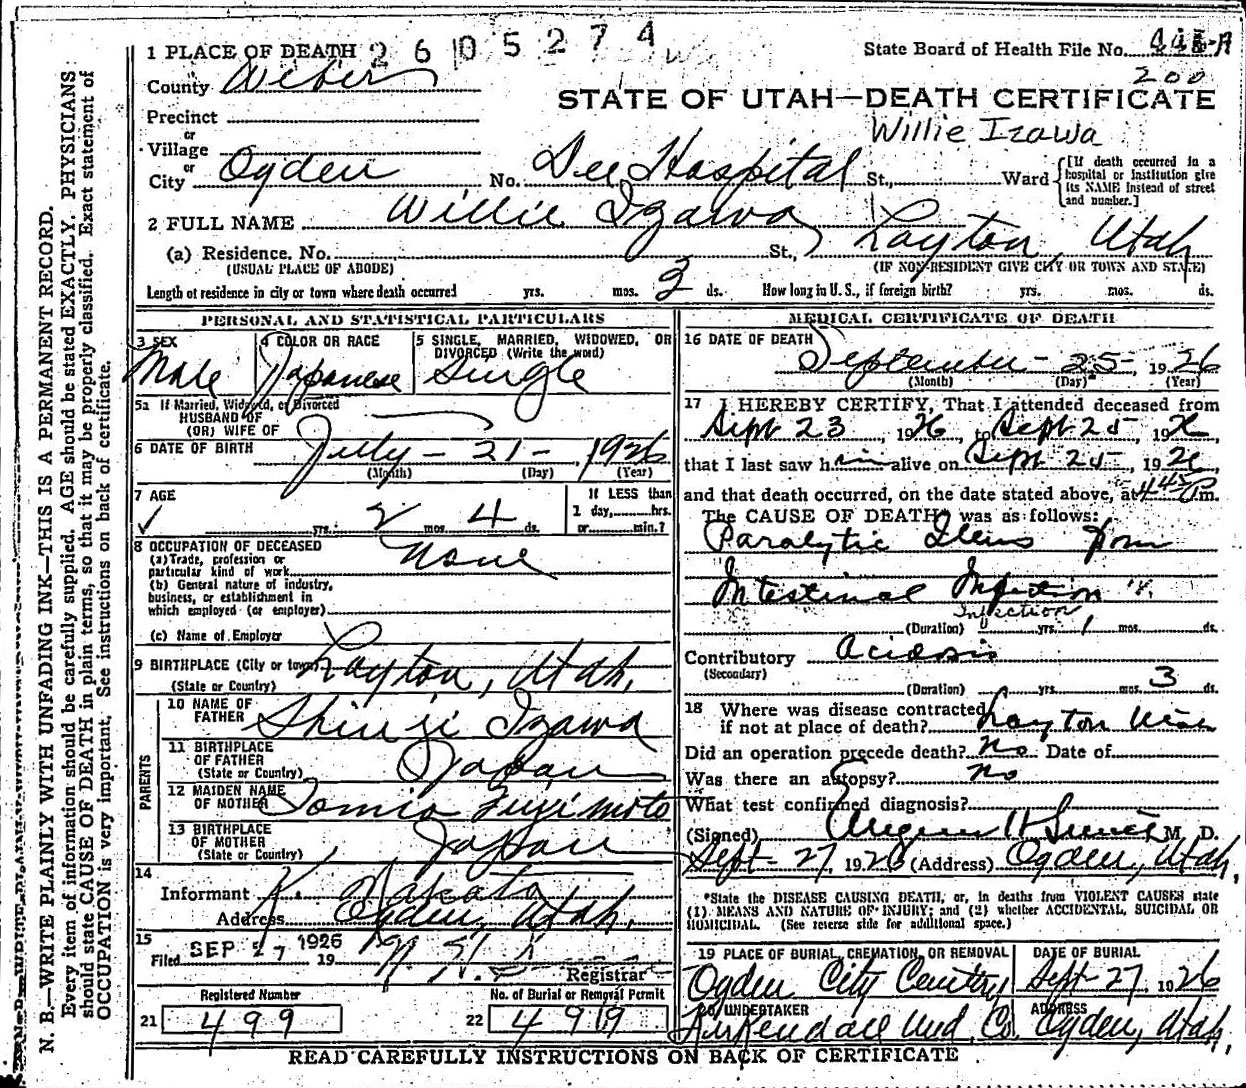 1 PLACE OF DEATH 2605274
State Board of Health File No. 200
County Weber
STATE OF UTAH—DEATH CERTIFICATE
Precinct
Willie Izawa
or
Village
or
City Ogden No. Dee Hospital St., Ward
[If death occurred in a hospital or institution give its NAME instead of street and number.]
2 FULL NAME Willie Izawa
(a) Residence. No. St., Layton, Utah
(USUAL PLACE OF ABODE) (IF NON-RESIDENT GIVE CITY OR TOWN AND STATE)
Length of residence in city or town where death occurred yrs. mos. 3 ds. How long in U. S., if foreign birth? yrs. mos. ds.
PERSONAL AND STATISTICAL PARTICULARS
3 SEX Male
4 COLOR OR RACE Japanese
5 SINGLE, MARRIED, WIDOWED, OR DIVORCED (Write the word) Single
5a If Married, Widowed, or Divorced
HUSBAND OF
(OR) WIFE OF
6 DATE OF BIRTH July - 21 - , 1926
(Month) (Day) (Year)
7 AGE
yrs. 2 mos. 4 ds.
If LESS than
1 day, hrs.
or min.?
8 OCCUPATION OF DECEASED None
(a) Trade, profession or
particular kind of work
(b) General nature of industry,
business, or establishment in
which employed (or employer)
(c) Name of Employer
9 BIRTHPLACE (City or town) Layton, Utah.
(State or Country)
PARENTS
10 NAME OF FATHER Shinji Izawa
11 BIRTHPLACE OF FATHER Japan
(State or Country)
12 MAIDEN NAME OF MOTHER Tomio Fujimoto
13 BIRTHPLACE OF MOTHER Japan
(State or Country)
14
Informant K.
Address Ogden, Utah.
15
Filed SEP 27 1926 19
Registrar
Registered Number
21 499
No. of Burial or Removal Permit
22 4919
MEDICAL CERTIFICATE OF DEATH
16 DATE OF DEATH
September - 25 - , 1926
(Month) (Day) (Year)
17 I HEREBY CERTIFY, That I attended deceased from
Sept 23, 1926, to Sept 25, 1926,
that I last saw him alive on Sept 25, 1926,
and that death occurred, on the date stated above, at 445 P m.
The CAUSE OF DEATH* was as follows:
Paralytic Ileus from
Intestinal Infection
Infection
(Duration) yrs. 1 mos. ds.
Contributory acidosis
(Secondary)
(Duration) yrs. mos. 3 ds.
18 Where was disease contracted
if not at place of death? Layton Utah
Did an operation precede death? No Date of
Was there an autopsy? no
What test confirmed diagnosis?
(Signed) M. D.
Sept - 27, 1926 (Address) Ogden, Utah.
*State the DISEASE CAUSING DEATH, or, in deaths from VIOLENT CAUSES state
(1) MEANS AND NATURE OF INJURY; and (2) whether ACCIDENTAL, SUICIDAL OR
HOMICIDAL. (See reverse side for additional space.)
19 PLACE OF BURIAL, CREMATION, OR REMOVAL
Ogden City Cemetery
DATE OF BURIAL
Sept 27 1926
20 UNDERTAKER
Kendall Und. Co.
ADDRESS
Ogden, Utah.
READ CAREFULLY INSTRUCTIONS ON BACK OF CERTIFICATE
N. B.—WRITE PLAINLY WITH UNFADING INK—THIS IS A PERMANENT RECORD.
Every item of information should be carefully supplied. AGE should be stated EXACTLY. PHYSICIANS
should state CAUSE OF DEATH in plain terms, so that it may be properly classified. Exact statement of
OCCUPATION is very important. See instructions on back of certificate.